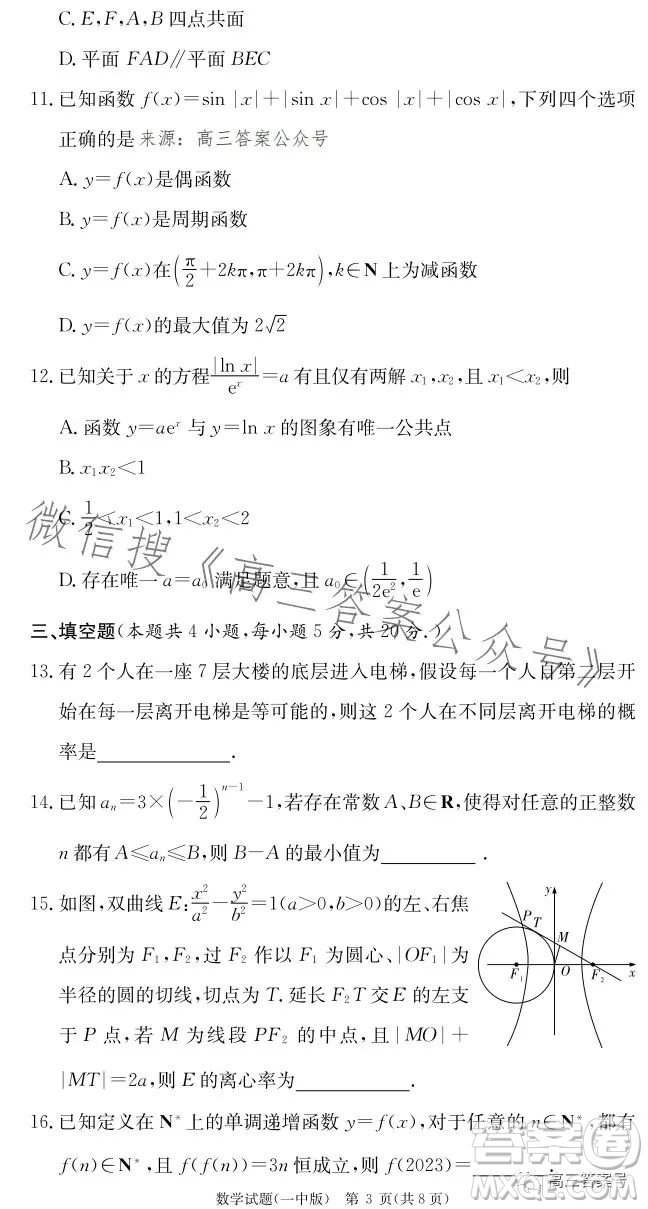 C. E,F,A,B 四点共面
D. 平面 FAD∥平面 BEC
11. 已知函数 f(x)=sin |x|+|sin x|+cos |x|+|cos x|,下列四个选项
正确的是 来源：高三答案公众号
A. y=f(x)是偶函数
B. y=f(x)是周期函数
C. y=f(x)在(π/2+2kπ,π+2kπ),k∈N 上为减函数
D. y=f(x)的最大值为 2√2
12. 已知关于 x 的方程|ln x|/eˣ=a 有且仅有两解 x₁,x₂,且 x₁<x₂,则
A. 函数 y=aeˣ 与 y=ln x 的图象有唯一公共点
B. x₁x₂<1
C. 1/2<x₁<1,1<x₂<2
D. 存在唯一 a=a₀ 满足题意,且 a₀∈(1/2e²,1/e)
微信搜《高三答案公众号》
三、填空题(本题共 4 小题,每小题 5 分,共 20 分.)
13. 有 2 个人在一座 7 层大楼的底层进入电梯,假设每一个人自第二层开
始在每一层离开电梯是等可能的,则这 2 个人在不同层离开电梯的概
率是____________.
14. 已知 aₙ=3×(-1/2)ⁿ⁻¹-1,若存在常数 A、B∈R,使得对任意的正整数
n 都有 A≤aₙ≤B,则 B-A 的最小值为__________ .
15. 如图,双曲线 E:x²/a²-y²/b²=1(a>0,b>0)的左、右焦
点分别为 F₁,F₂,过 F₂ 作以 F₁ 为圆心、|OF₁|为
半径的圆的切线,切点为 T. 延长 F₂T 交 E 的左支
于 P 点,若 M 为线段 PF₂ 的中点,且|MO|+
|MT|=2a,则 E 的离心率为____________.
y
P
T
M
F₁
O
F₂
x
16. 已知定义在 N* 上的单调递增函数 y=f(x),对于任意的 n∈N*,都有
f(n)∈N*,且 f(f(n))=3n 恒成立,则 f(2023)=__________.
高三答案号
答案圈
数学试题(一中版) 第 3 页(共 8 页)